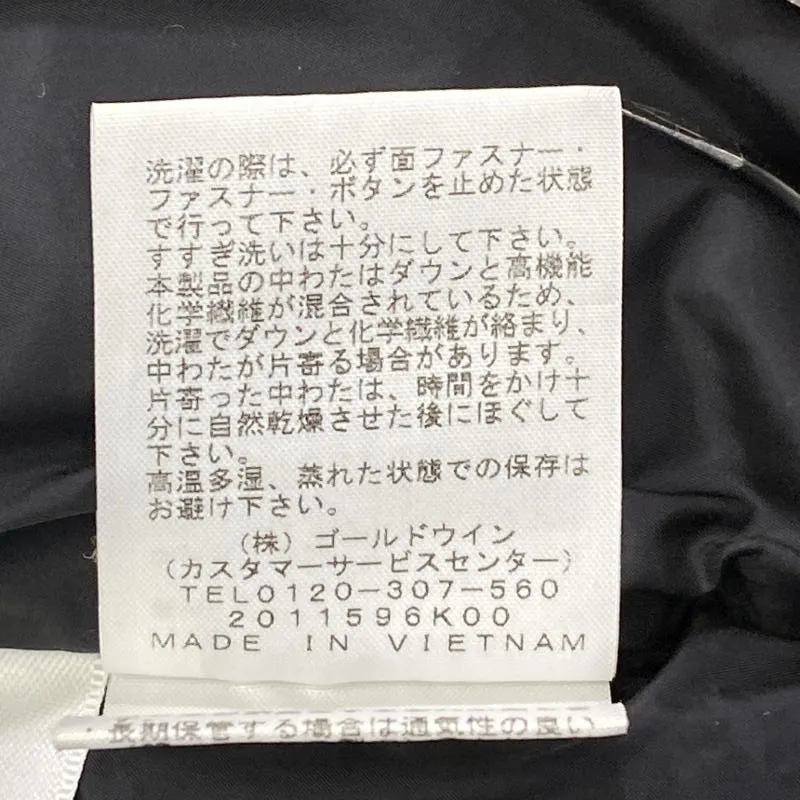 洗濯の際は、必ず面ファスナー・
ファスナー・ボタンを止めた状態
で行って下さい。
すすぎ洗いは十分にして下さい。
本製品の中わたはダウンと高機能
化学繊維が混合されているため、
洗濯でダウンと化学繊維が絡まり、
中わたが片寄る場合があります。
片寄った中わたは、時間をかけ十
分に自然乾燥させた後にほぐして
下さい。
高温多湿、蒸れた状態での保存は
お避け下さい。
(株) ゴールドウイン
(カスタマーサービスセンター)
TEL0120-307-560
2011596K00
MADE IN VIETNAM
・長期保管する場合は通気性の良い